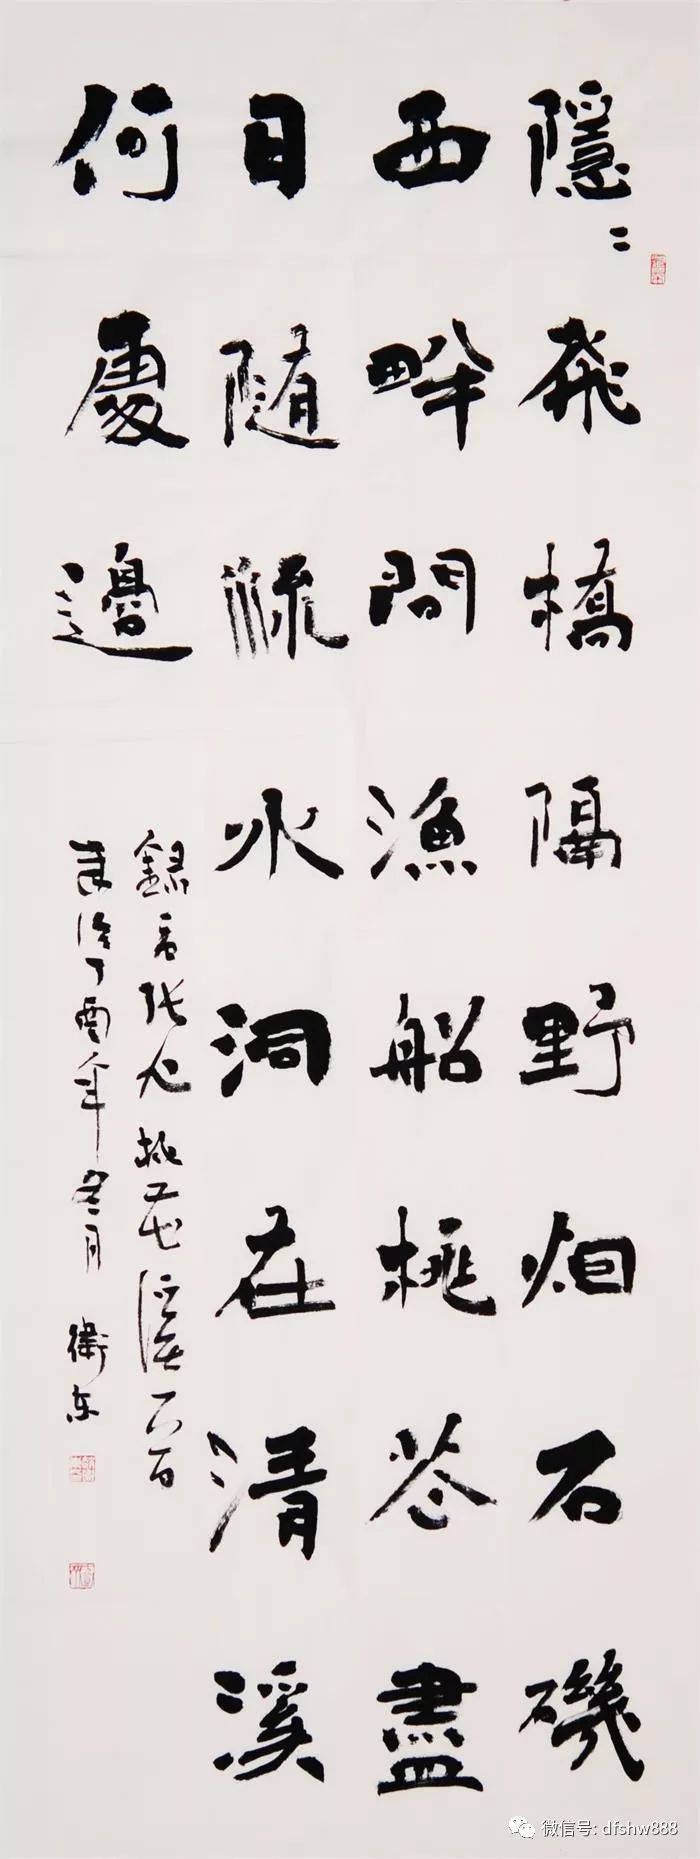 隱〻飛橋隔野烟石磯
西畔問漁船桃花盡
日随流水洞在清溪
何處邊
錄唐張旭桃花溪一首
歲次丁酉年冬月 衛东
微信号: dfshw888